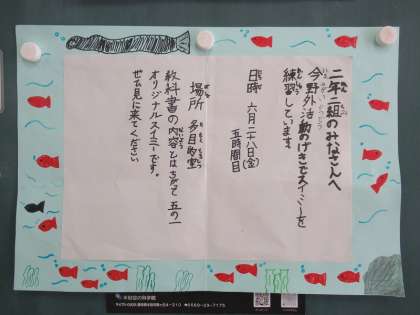 二年二組のみなさんへ
今野外活動のげきでスイミーを
練習しています。
日時 六月二十八日(金)
五時間目
場所 多目的室
教科書の内容とはちがって 五の一
オリジナルスイミーです。
ぜひ見に来てください
半田空の科学館
4-210 0569-23-7175